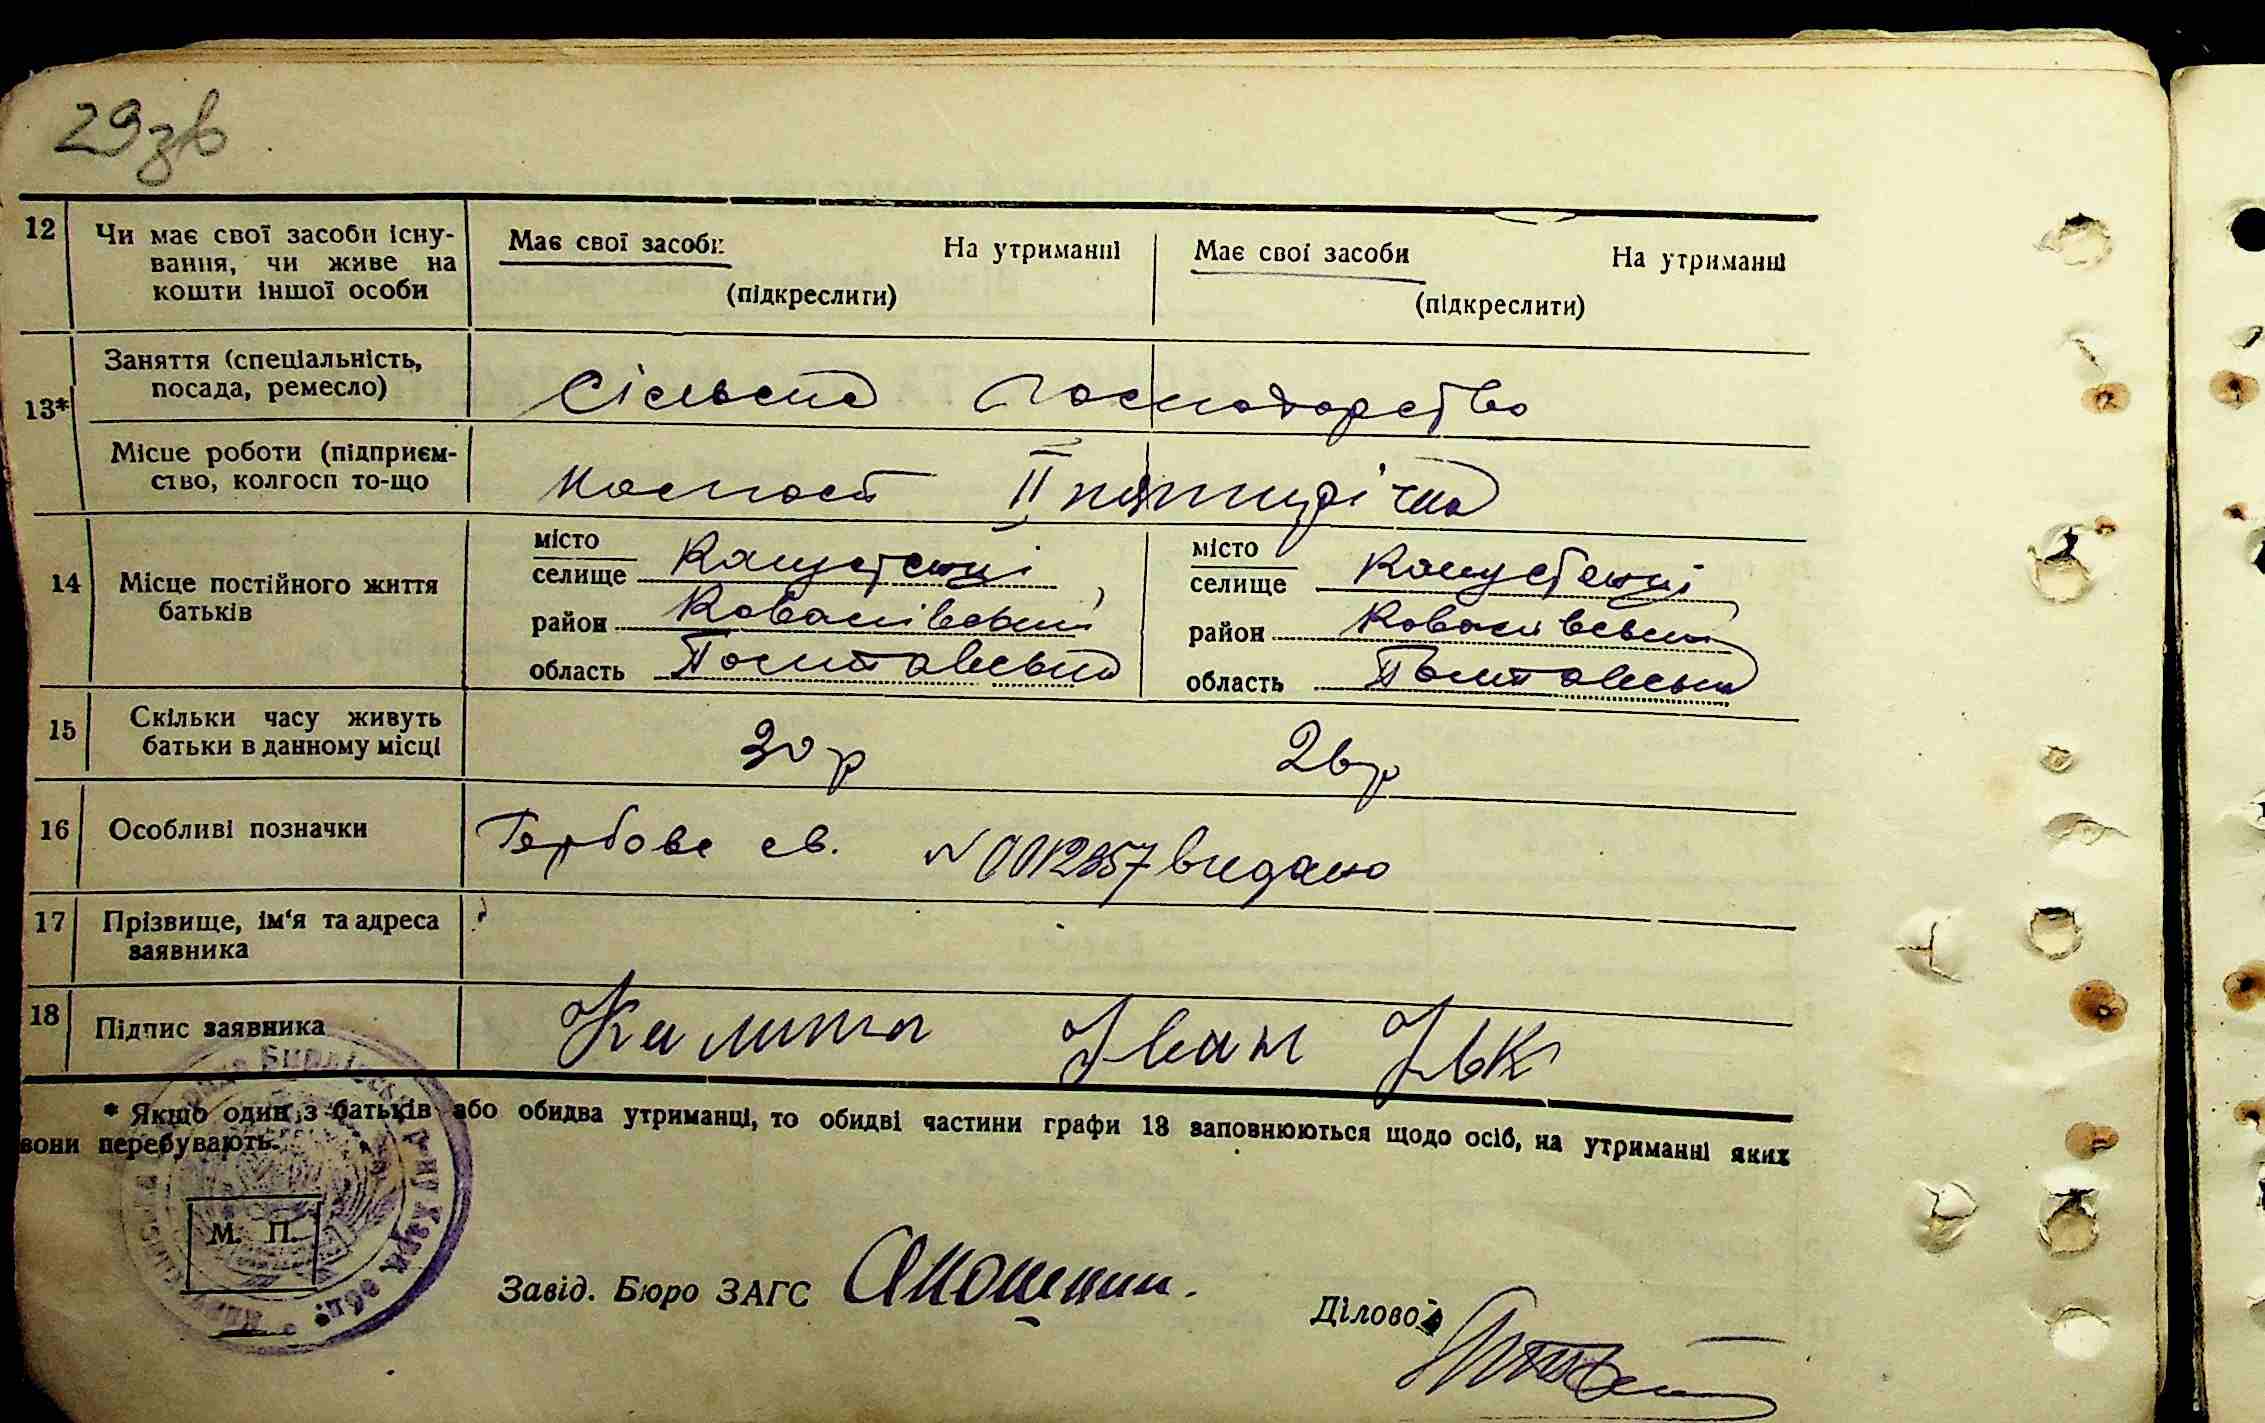 29зв
12 Чи має свої засоби існу-
вання, чи живе на
кошти іншої особи
Має свої засоби На утриманні
(підкреслити)
Має свої засоби На утриманні
(підкреслити)
13* Заняття (спеціальність,
посада, ремесло)
Сільське господарство
Місце роботи (підприєм-
ство, колгосп то-що
колгосп II п'ятирічка
14 Місце постійного життя
батьків
місто
селище Капустенці
район Ковалівський
область Полтавська
місто
селище Капустенці
район Ковалівський
область Полтавська
15 Скільки часу живуть
батьки в данному місці
30 р 26 р
16 Особливі позначки
Гербове св. N 0012857 видано
17 Прізвище, ім'я та адреса
заявника
18 Підпис заявника
Калита Іван
* Якщо один з батьків або обидва утриманці, то обидві частини графи 13 заповнюються щодо осіб, на утриманні яких
вони перебувають.
М. П.
Завід. Бюро ЗАГС
Діловод